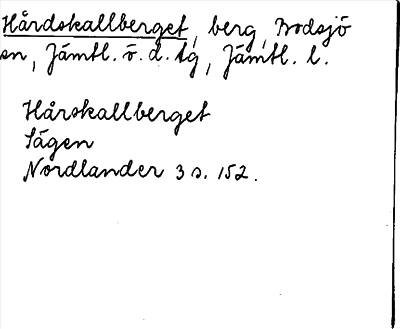 Hårdskallberget, berg, Bodsjö
sn, Jämtl. ö. d. tg, Jämtl. l.
Hårskallberget
Sägen
Nordlander 3 s. 152.